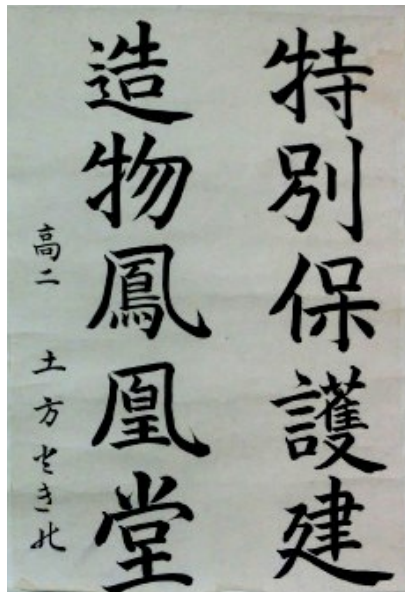 特別保護建
造物鳳凰堂
高二 土方ときの